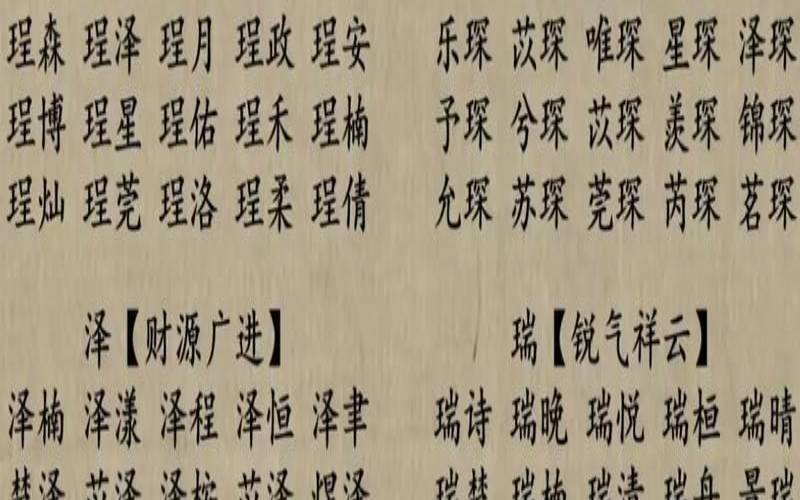 珵森 珵泽 珵月 珵政 珵安
珵博 珵星 珵佑 珵禾 珵楠
珵灿 珵莞 珵洛 珵柔 珵倩
泽【财源广进】
泽楠 泽漾 泽程 泽恒 泽聿
乐琛 苡琛 唯琛 星琛 泽琛
予琛 兮琛 苡琛 羡琛 锦琛
允琛 苏琛 莞琛 芮琛 茗琛
瑞【锐气祥云】
瑞诗 瑞晚 瑞悦 瑞桓 瑞晴